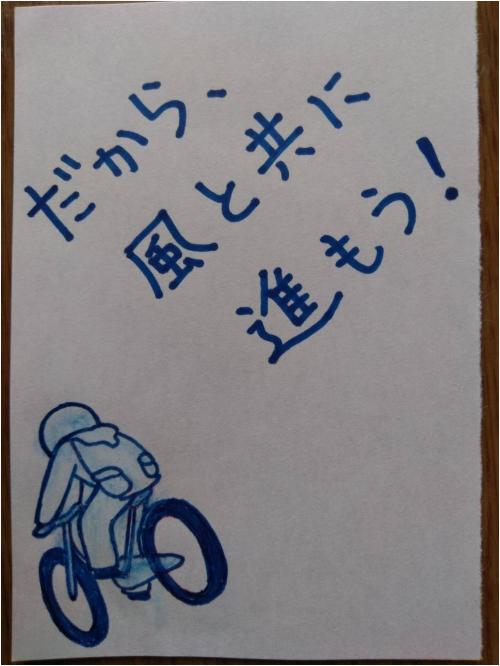 だから、
風と共に
進もう！